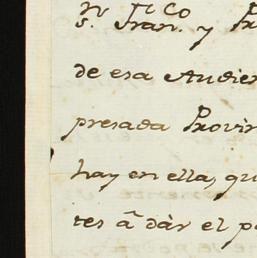 S.n Fran.co y Pr
de esa Audien
presada Provin
hay en ella, qu
tes â dàr el pa